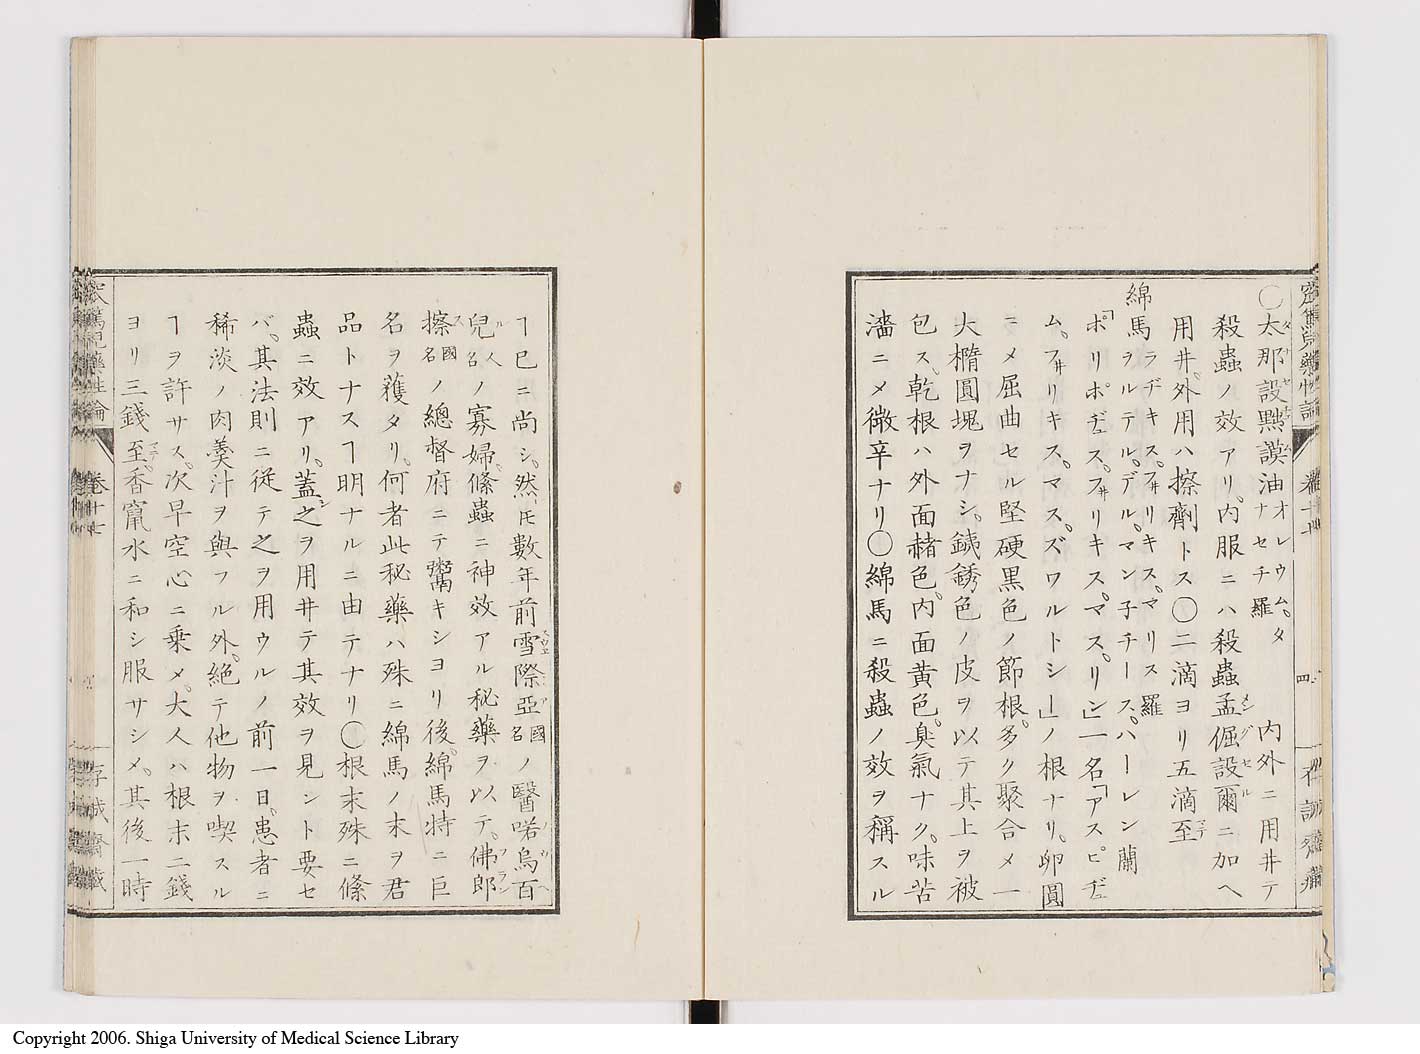 〇太那設黙謨油オレウム。タナセチ羅 内外ニ用井テ
殺蟲ノ效アリ。内服ニハ殺蟲孟倔設爾ニ加ヘ
用井。外用ハ擦劑トス〇二滴ヨリ五滴至
綿馬ラヂキス。フ井リキス。マリス羅ヲルテル。デル。マン子チース。パーレン蘭
「ポリポヂュス。フ井リキス。マス。リン」一名「アスピヂュ
ム。フ井リキス。マス。ズワルトシ」ノ根ナリ。卵圓
ニメ屈曲セル堅硬黒色ノ節根。多ク聚合メ一
大橢圓塊ヲナシ。銕銹色ノ皮ヲ以テ其上ヲ被
包ス。乾根ハ外面赭色。内面黄色。臭氣ナク。味苦
濇ニメ微辛ナリ〇綿馬ニ殺蟲ノ效ヲ稱スル
ヿ已ニ尚シ。然𪜈數年前雪際亞國名ノ醫喏烏百
兒人名ノ寡婦。絛蟲ニ神效アル秘藥ヲ以テ。佛郎
擦國名ノ總督府ニテ鬻キシヨリ後。綿馬特ニ巨
名ヲ獲タリ。何者此秘藥ハ殊ニ綿馬ノ末ヲ君
品トナスヿ明ナルニ由テナリ〇根末殊ニ絛
蟲ニ效アリ。蓋之ヲ用井テ其效ヲ見ント要セ
バ。其法則ニ從テ之ヲ用ウルノ前一日。患者ニ
稀淡ノ肉羹汁ヲ與フル外。絶テ他物ヲ喫スル
ヿヲ許サス。次早空心ニ乗メ。大人ハ根末二錢
ヨリ三錢至。香竄水ニ和シ服サシメ。其後一時
卷十七
存誠齋藏
Copyright 2006. Shiga University of Medical Science Library